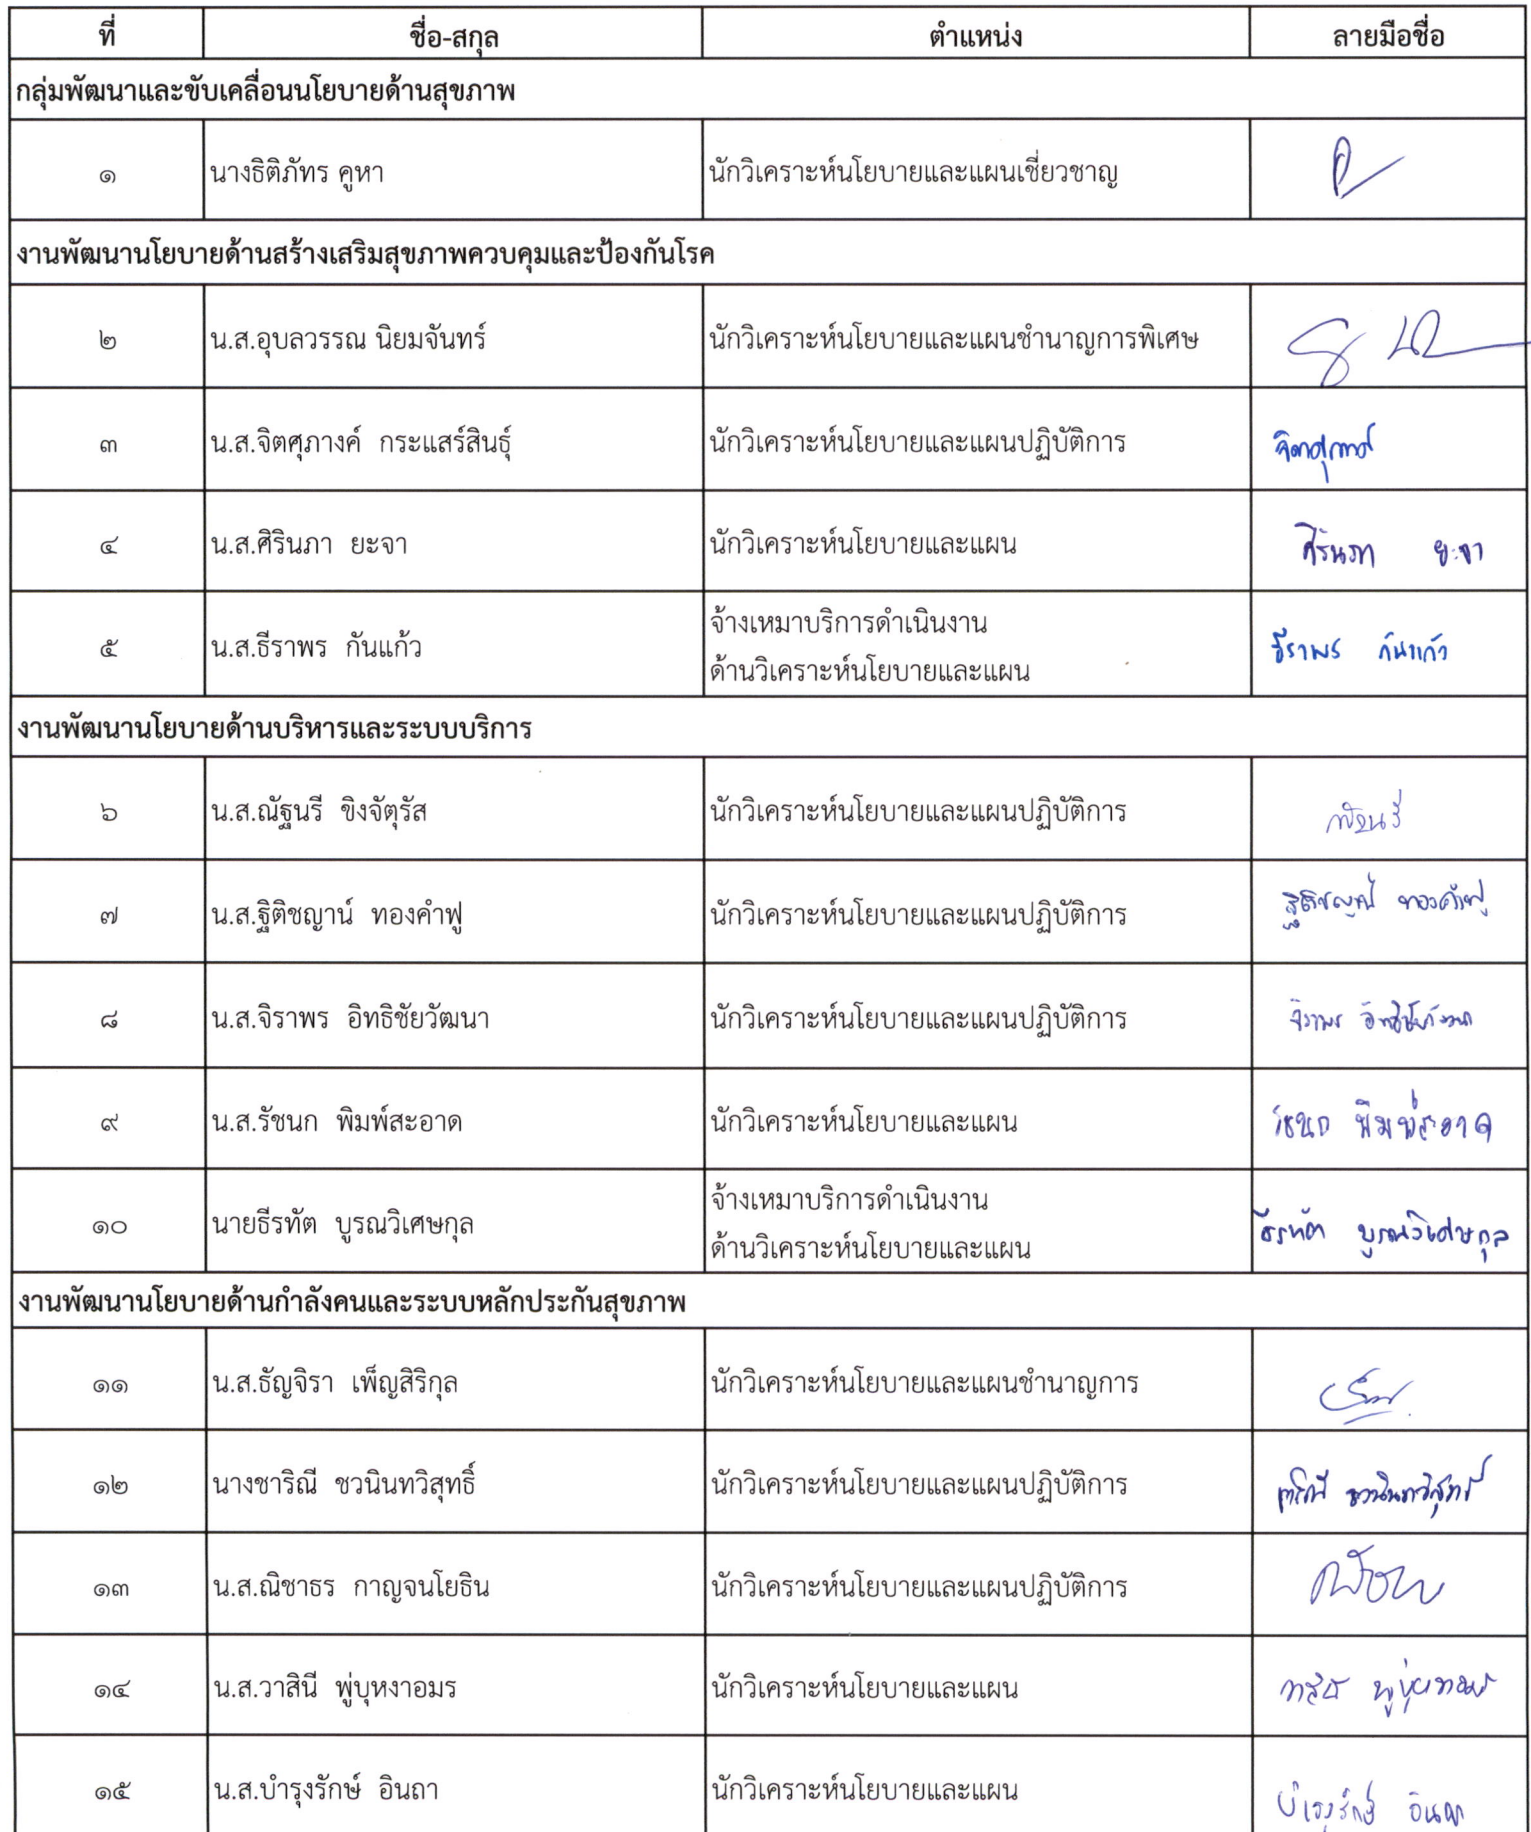 ที่ ชื่อ-สกุล ตำแหน่ง ลายมือชื่อ
กลุ่มพัฒนาและขับเคลื่อนนโยบายด้านสุขภาพ
๑ นางธิติภัทร คูหา นักวิเคราะห์นโยบายและแผนเชี่ยวชาญ
งานพัฒนานโยบายด้านสร้างเสริมสุขภาพควบคุมและป้องกันโรค
๒ น.ส.อุบลวรรณ นิยมจันทร์ นักวิเคราะห์นโยบายและแผนชำนาญการพิเศษ
๓ น.ส.จิตศุภางค์ กระแสร์สินธุ์ นักวิเคราะห์นโยบายและแผนปฏิบัติการ จิตศุภางค์
๔ น.ส.ศิรินภา ยะจา นักวิเคราะห์นโยบายและแผน ศิรินภา ยะจา
๕ น.ส.ธีราพร กันแก้ว จ้างเหมาบริการดำเนินงาน
ด้านวิเคราะห์นโยบายและแผน ธีราพร กันแก้ว
งานพัฒนานโยบายด้านบริหารและระบบบริการ
๖ น.ส.ณัฐนรี ขิงจัตุรัส นักวิเคราะห์นโยบายและแผนปฏิบัติการ ณัฐนรี
๗ น.ส.ฐิติชญาน์ ทองคำฟู นักวิเคราะห์นโยบายและแผนปฏิบัติการ ฐิติชญาน์ ทองคำฟู
๘ น.ส.จิราพร อิทธิชัยวัฒนา นักวิเคราะห์นโยบายและแผนปฏิบัติการ จิราพร อิทธิชัยวัฒนา
๙ น.ส.รัชนก พิมพ์สะอาด นักวิเคราะห์นโยบายและแผน รัชนก พิมพ์สะอาด
๑๐ นายธีรทัต บูรณวิเศษกุล จ้างเหมาบริการดำเนินงาน
ด้านวิเคราะห์นโยบายและแผน ธีรทัต บูรณวิเศษกุล
งานพัฒนานโยบายด้านกำลังคนและระบบหลักประกันสุขภาพ
๑๑ น.ส.ธัญจิรา เพ็ญสิริกุล นักวิเคราะห์นโยบายและแผนชำนาญการ
๑๒ นางชาริณี ชวนินทวิสุทธิ์ นักวิเคราะห์นโยบายและแผนปฏิบัติการ ชาริณี ชวนินทวิสุทธิ์
๑๓ น.ส.ณิชาธร กาญจนโยธิน นักวิเคราะห์นโยบายและแผนปฏิบัติการ
๑๔ น.ส.วาสินี พู่บุหงาอมร นักวิเคราะห์นโยบายและแผน วาสินี พู่บุหงาอมร
๑๕ น.ส.บำรุงรักษ์ อินถา นักวิเคราะห์นโยบายและแผน บำรุงรักษ์ อินถา